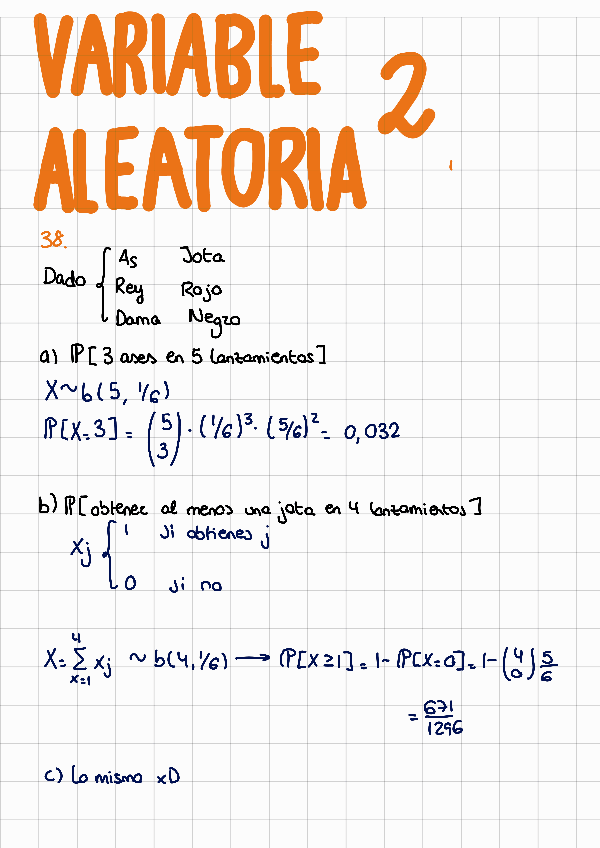 VARIABLE
ALEATORIA 2
38.
Dado { As Jota
Rey Rojo
Dama Negro
a) ℙ[3 ases en 5 lanzamientos]
X~b(5, 1/6)
ℙ[X=3] = (5 3) · (1/6)³ · (5/6)² = 0,032
b) ℙ[obtener al menos una jota en 4 lanzamientos]
Xj { 1 si obtienes j
0 si no
X = Σ⁴ₓ₌₁ Xj ~ b(4, 1/6) → ℙ[X≥1] = 1 - ℙ[X=0] = 1 - (4 0) 5/6
= 671/1296
c) Lo mismo xD